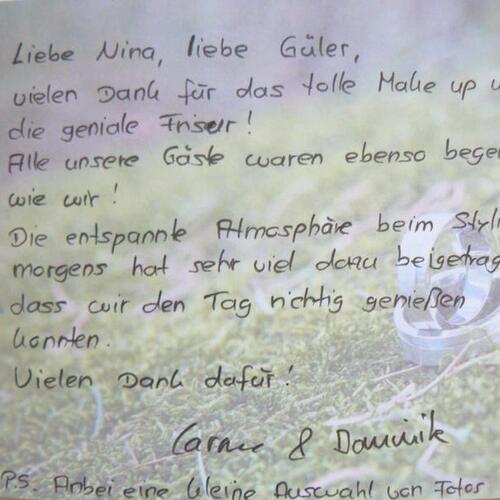 Liebe Nina, liebe Güler,
vielen Dank für das tolle Make up u
die geniale Frisur!
Alle unsere Gäste waren ebenso begei
wie wir!
Die entspannte Atmosphäre beim Styli
morgens hat sehr viel dazu beigetrag
dass wir den Tag richtig genießen
konnten.
Vielen Dank dafür!
& Dominik
P.S. Anbei eine kleine Auswahl von Fotos